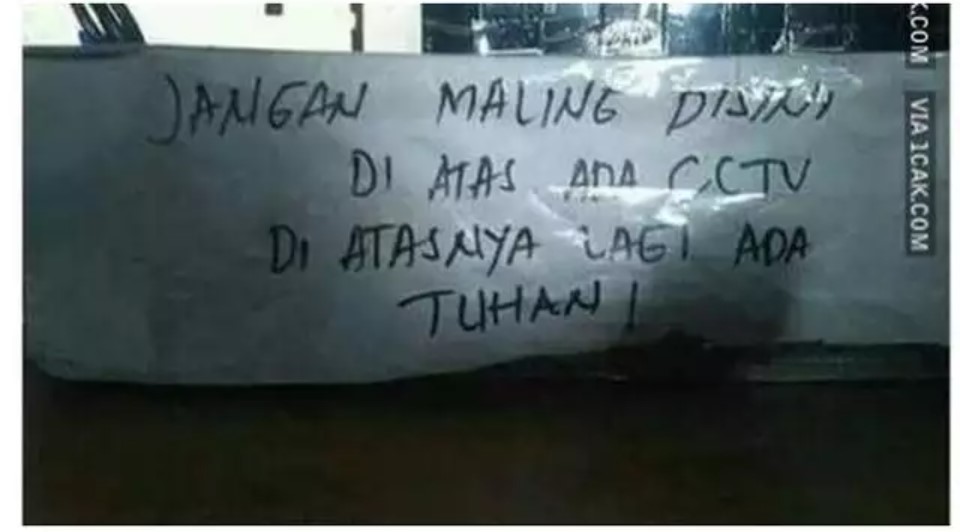 JANGAN MALING DISINI
DI ATAS ADA CCTV
DI ATASNYA LAGI ADA
TUHAN!
K.COM VIA 1CAK.COM